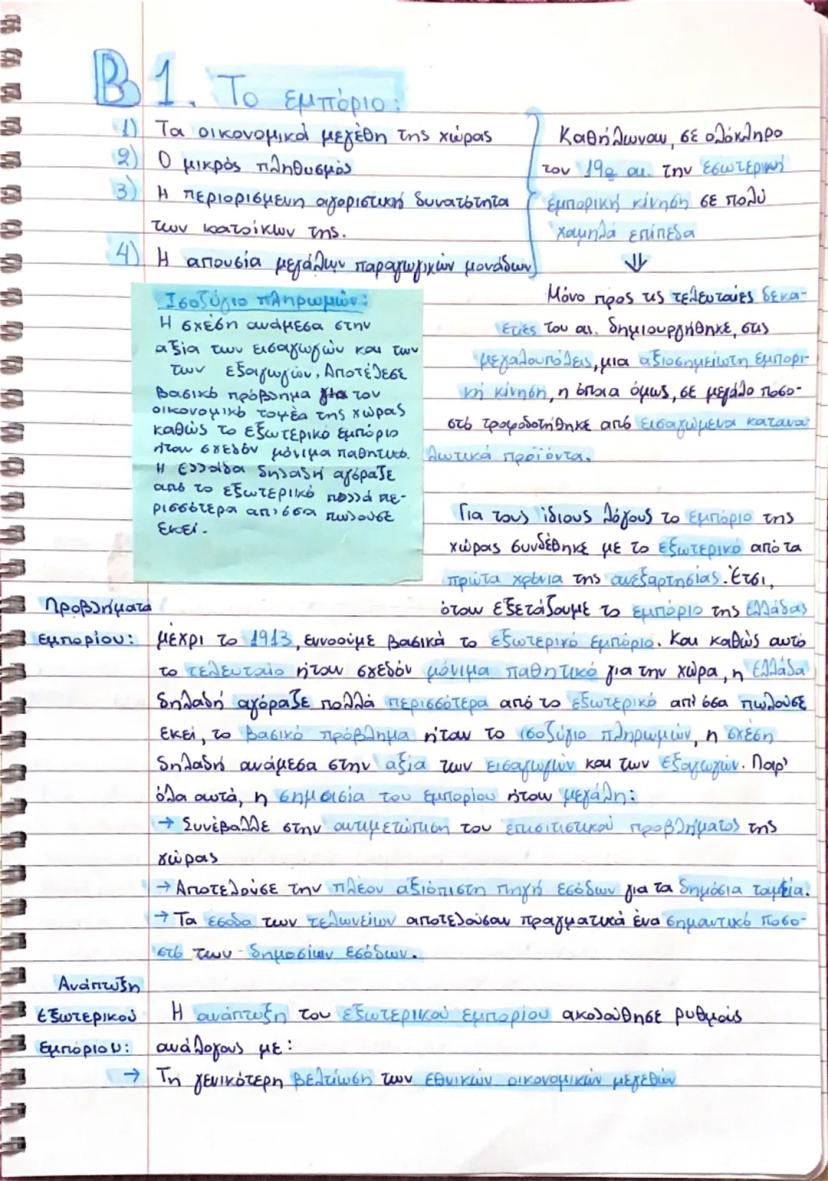 Β 1. Το εμπόριο:
1) Τα οικονομικά μεγέθη της χώρας
2) Ο μικρός πληθυσμός
3) Η περιορισμένη αγοραστική δυνατότητα
των κατοίκων της.
4) Η απουσία μεγάλων παραγωγικών μονάδων
Καθήλωναν, σε ολόκληρο
τον 19ο αι. την εσωτερική
εμπορική κίνηση σε πολύ
χαμηλά επίπεδα
⇓
Μόνο προς τις τελευταίες δεκα-
ετίες του αι. δημιουργήθηκε, στις
μεγαλουπόλεις, μια αξιοσημείωτη εμπορι-
κή κίνηση, η όποια όμως, σε μεγάλο ποσο-
στό τροφοδοτήθηκε από εισαγώμενα κατανα
λωτικά προϊόντα.
Ισοζύγιο πληρωμών:
Η σχέση ανάμεσα στην
αξία των εισαγωγών και των
των εξαγωγών. Αποτέλεσε
βασικό πρόβλημα για τον
οικονομικό τομέα της χώρας
καθώς το εξωτερικό εμπόριο
ήταν σχεδόν μόνιμα παθητικό.
Η Ελλάδα δηλαδή αγόραζε
από το εξωτερικό πολλά πε-
ρισσότερα απ'όσα πωλούσε
εκεί.
Για τους ίδιους λόγους το εμπόριο της
χώρας συνδέθηκε με το εξωτερικό από τα
πρώτα χρόνια της ανεξαρτησίας. Έτσι,
όταν εξετάζουμε το εμπόριο της Ελλάδας
Προβλήματα
εμπορίου:
μέχρι το 1913, εννοούμε βασικά το εξωτερικό εμπόριο. Και καθώς αυτό
το τελευταίο ήταν σχεδόν μόνιμα παθητικό για την χώρα, η Ελλάδα
δηλαδή αγόραζε πολλά περισσότερα από το εξωτερικό απ' όσα πωλούσε
εκεί, το βασικό πρόβλημα ήταν το ισοζύγιο πληρωμών, η σχέση
δηλαδή ανάμεσα στην αξία των εισαγωγών και των εξαγωγών. Παρ'
όλα αυτά, η σημασία του εμπορίου ήταν μεγάλη:
→ Συνέβαλλε στην αντιμετώπιση του επισιτιστικού προβλήματος της
χώρας
→ Αποτελούσε την πλέον αξιόπιστη πηγή εσόδων για τα δημόσια ταμεία.
→ Τα έσοδα των τελωνείων αποτελούσαν πραγματικά ένα σημαντικό ποσο-
στό των δημοσίων εσόδων.
Ανάπτυξη
εξωτερικού
εμπορίου:
Η ανάπτυξη του εξωτερικού εμπορίου ακολούθησε ρυθμούς
ανάλογους με:
→ Τη γενικότερη βελτίωση των εθνικών οικονομικών μεγεθών